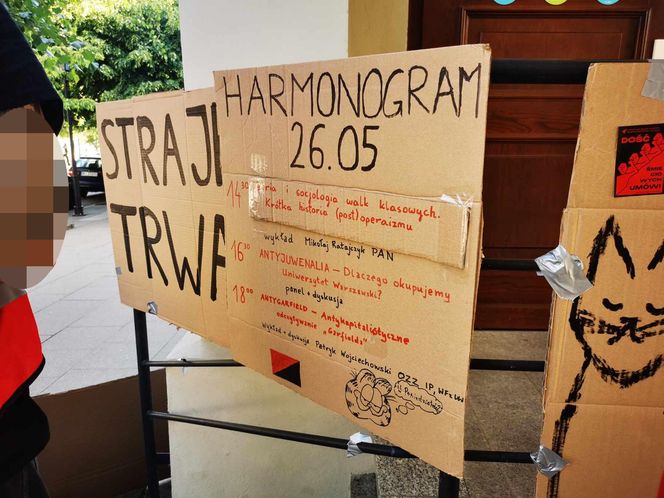 STRAJK
TRWA
HARMONOGRAM
26.05
14³⁰ i socjologia walk klasowych.
Krótka historia (post)operaizmu
wykład Mikołaj Ratajczyk PAN
16³⁰ ANTYJUWENALIA – Dlaczego okupujemy
Uniwersytet Warszawski?
panel + dyskusja
18⁰⁰ ANTYGARFIELD – Antykapitalistyczne
odczytywanie "Garfielda"
wykład + dyskusja Patryk Wojciechowski OZZ IP,
DOŚĆ
ŚMIE
CIO
WYCH
UMÓW!